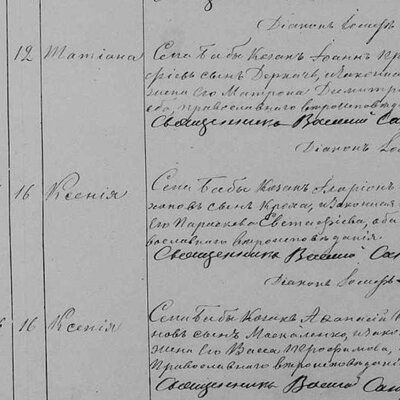 Діаконъ Іосифъ
12 Татіана Села Бабы Козакъ Іоаннъ
сынъ Деркачъ, и законная
жена его Матрона Димитр
православнаго вѣроисповѣд
Священникъ Василій Са
Діаконъ Іо
16 Ксенія Села Бабы Козакъ Иларіонъ
сынъ и законная
его Параскева оба
вославнаго вѣроисповѣданія
Священникъ Василій Сав
Діаконъ Іосифъ
16 Ксенія Села Бабы Козакъ Аѳанасій
новъ сынъ Москаленко, и закон
жена его Васса Трофимова,
Православнаго вѣроисповѣданія
Священникъ Василій Сав